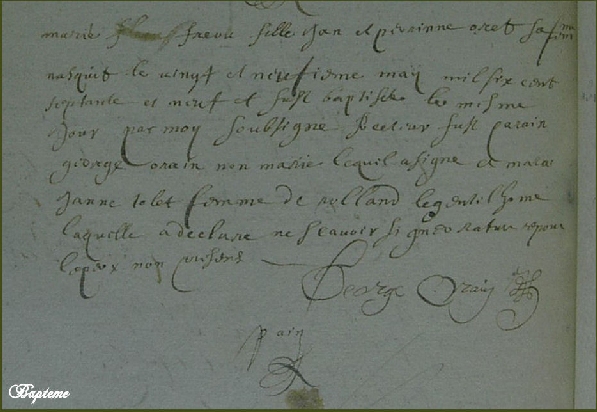 marie fille Jan et perrinne oret sa feme
nasquit le vingt et neufieme may mil six cent
septante et neuf et fust baptisée le mesme
Jour par moy soubsigné Recteur fust parain
george orain non marié lequel a signé et mara
Janne tolet femme de rolland legentilhome
laquelle a declaré ne scavoir signer
non present
George Orain
Bapteme